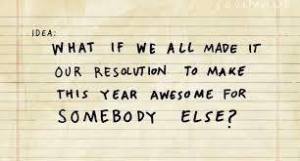 IDEA:
WHAT IF WE ALL MADE IT
OUR RESOLUTION TO MAKE
THIS YEAR AWESOME FOR
SOMEBODY ELSE?